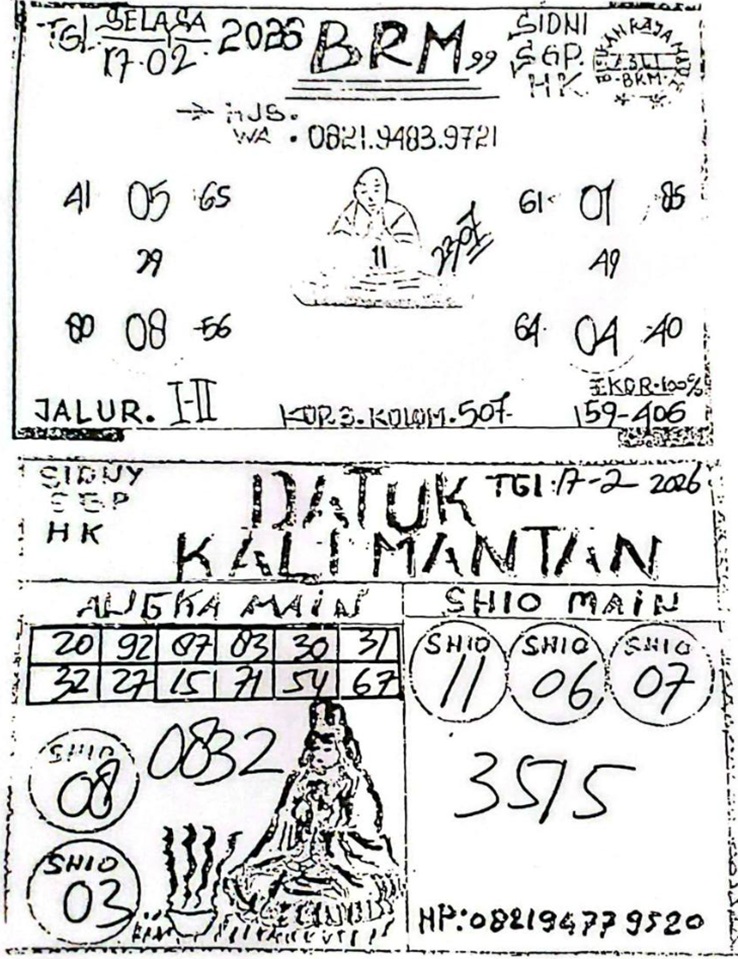 TGL SELASA 17-02 2026
BRM 99
SIDNI
SGP.
HK
BRM
→ HUB.
WA . 0821.9483.9721
41 05 65
29
80 08 -56
11
2307
61 01 85
49
64 04 40
EKOR.100%
JALUR. I-II
KOP.3.KOLOM.507-
159-406
SIDNY
SGP
HK
DATUK
KALIMANTAN
TGl.17-2 2026
ANGKA MAIN
20 92 87 83 30 31
32 27 15 71 54 67
SHIO MAIN
SHIO 11
SHIO 06
SHIO 07
SHIO 08
0832
3515
SHIO 03
HP:082194779520